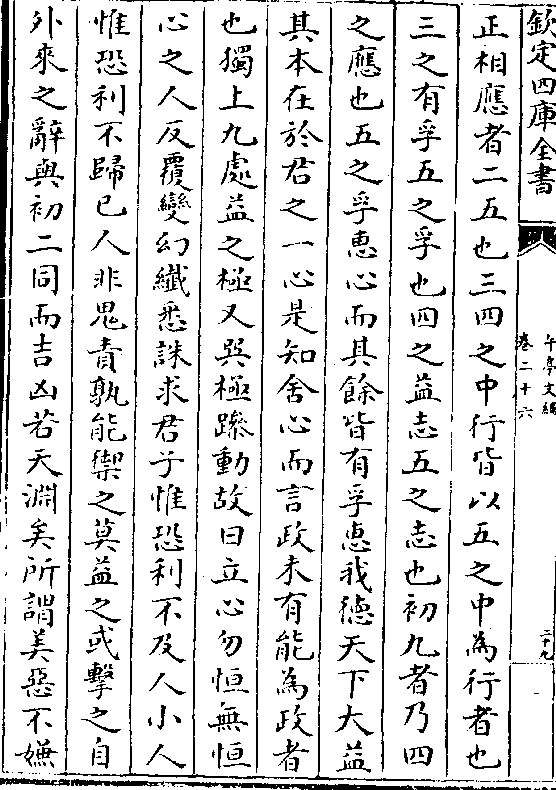 欽定四庫全書
午亭文編
卷二十六
二十九
正相應者二五也三四之中行皆以五之中為行者也
三之有孚五之孚也四之益志五之志也初九者乃四
之應也五之孚惠心而其餘皆有孚惠我徳天下大益
其本在於君之一心是知舍心而言政未有能為政者
也獨上九處益之極又巽極躁動故曰立心勿恒無恒
心之人反覆變幻纎悉誅求君子惟恐利不及人小人
惟恐利不歸已人非鬼責孰能禦之莫益之或擊之自
外來之辭與初二同而吉凶若天淵矣所謂美惡不嫌